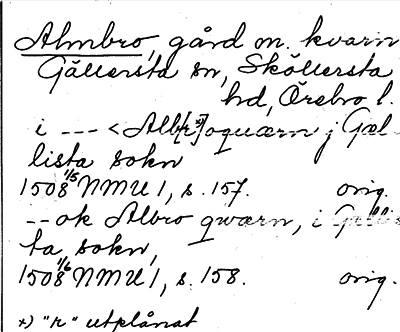 Almbro, gård m. kvarn
Gällersta sn, Sköllersta
hd, Örebro l.
i --- < Alb[r*]oquærn j Gæl-
lista sokn
1508 1/5 NMU 1, s. 157. orig.
-- ok Albro qwærn, i Gælls-
ta sokn,
1508 1/6 NMU 1, s. 158. orig.
*) "r" utplånat